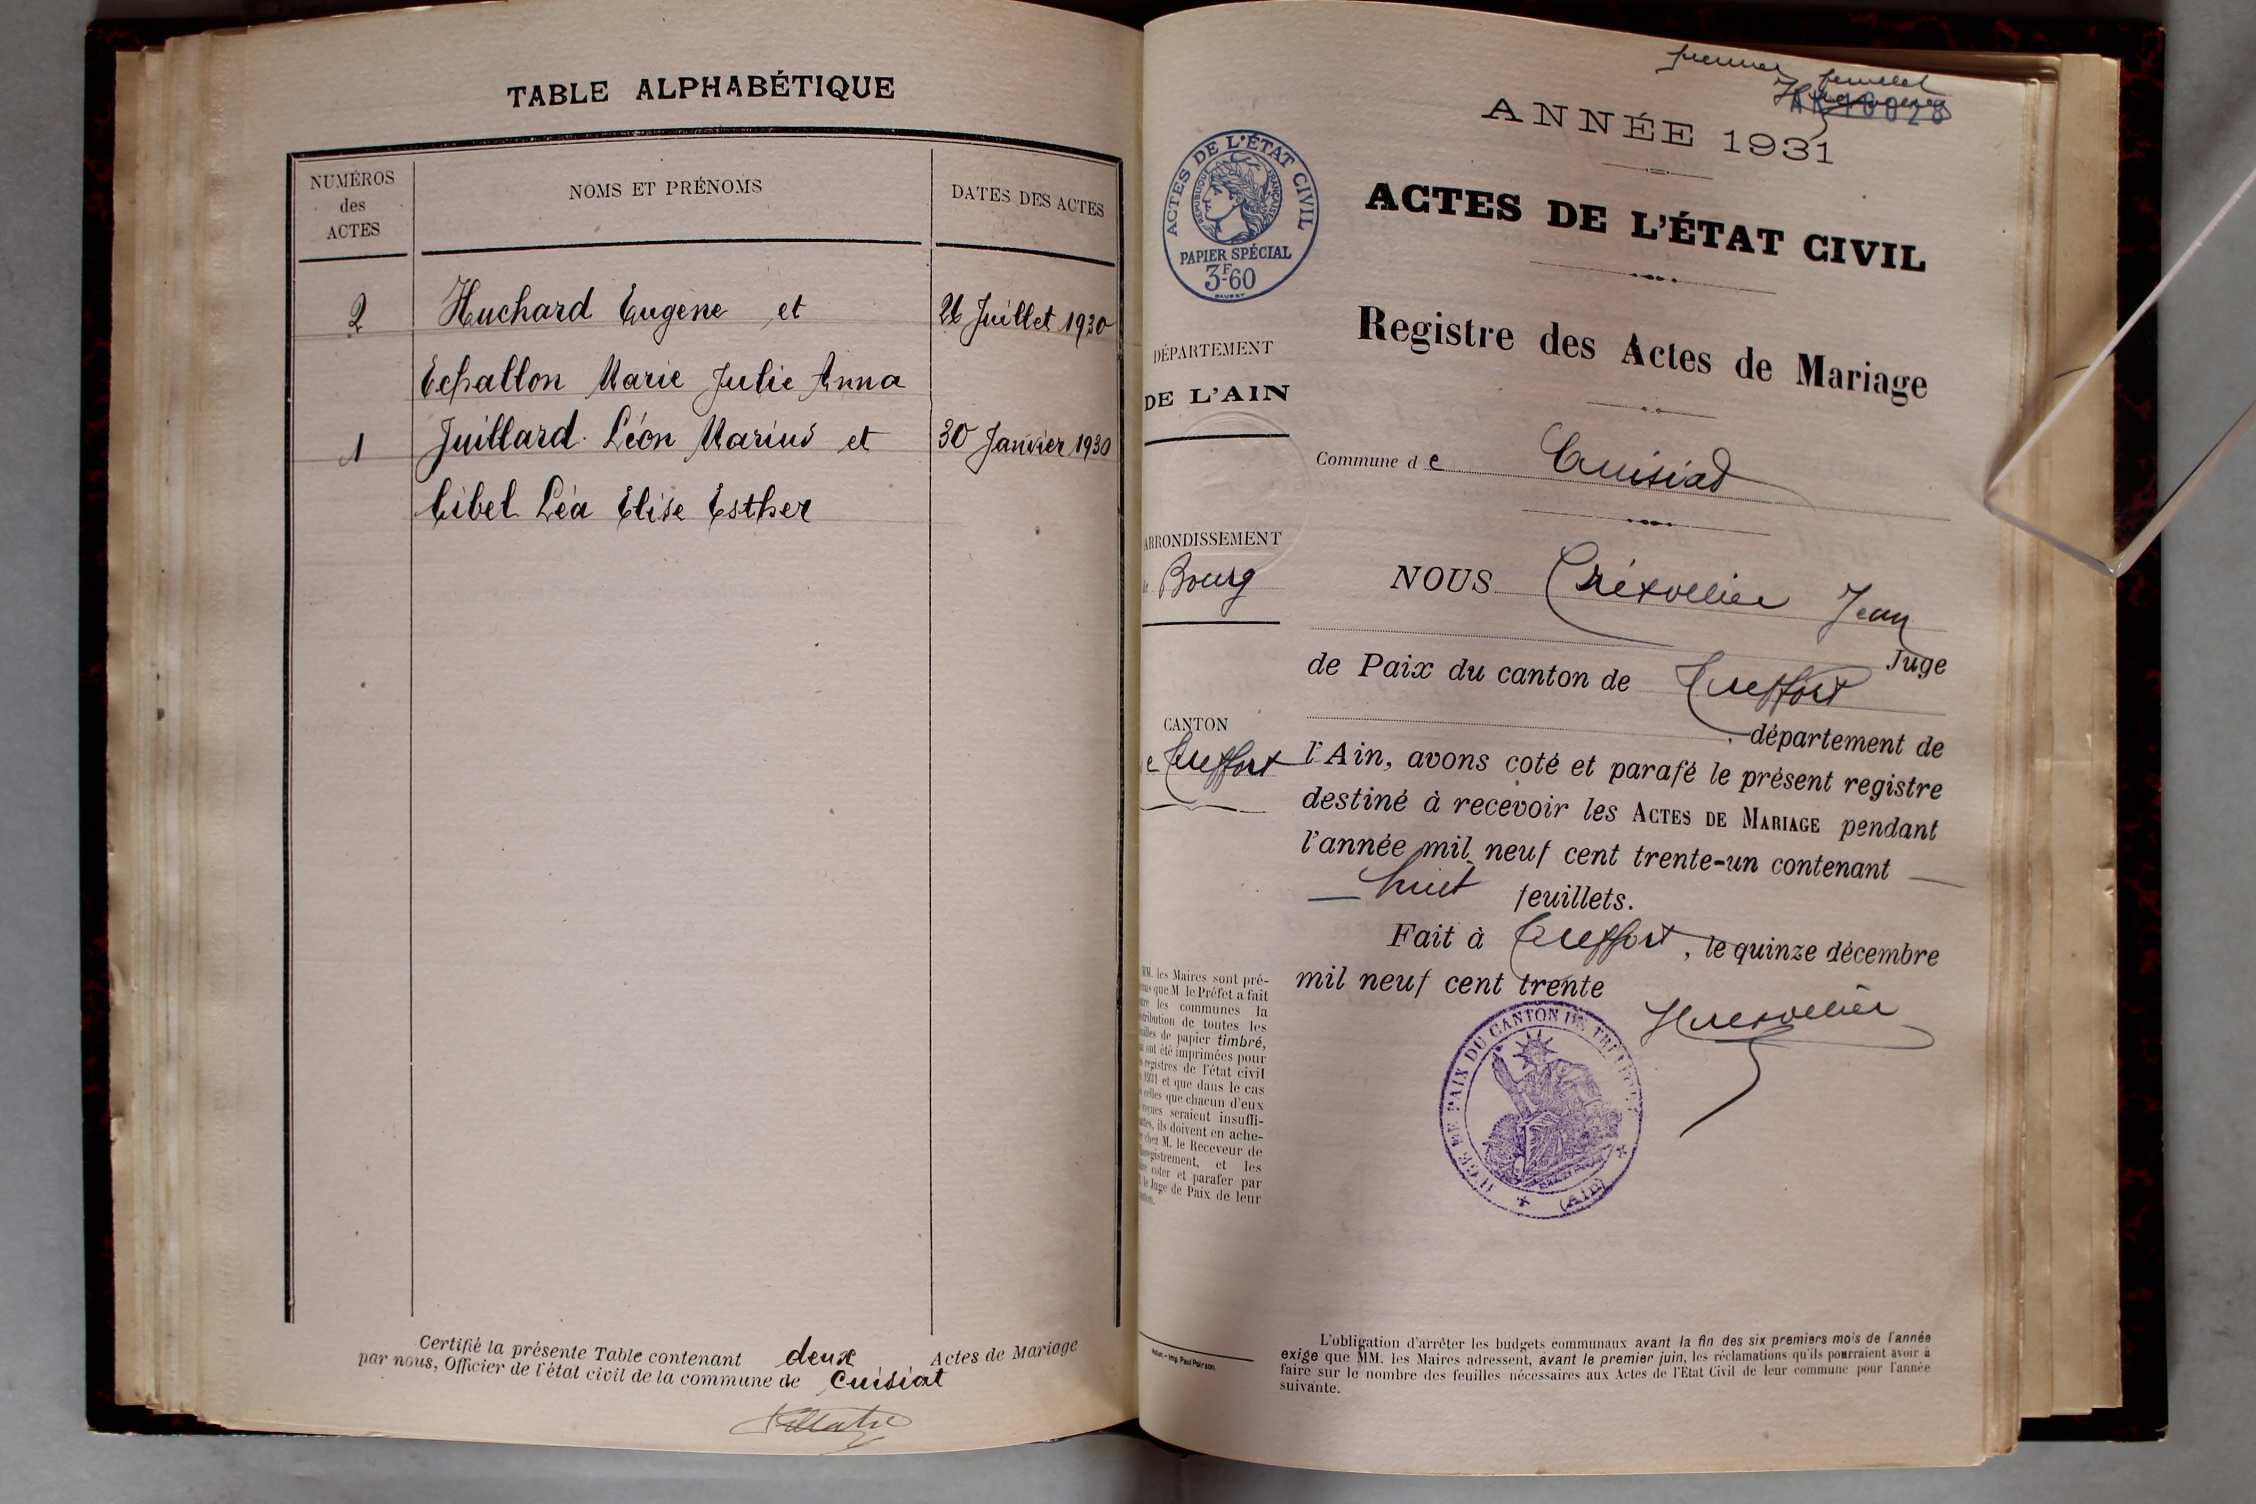 TABLE ALPHABÉTIQUE
NUMÉROS
des
ACTES
NOMS ET PRÉNOMS
DATES DES ACTES
2 Huchard Eugène et 26 Juillet 1930
Echallon Marie Julie Anna
1 Juillard Léon Marius et 30 Janvier 1930
Cibel Léa Elise Esther
Certifié la présente Table contenant deux Actes de Mariage
par nous, Officier de l'état civil de la commune de Cuisiat
premier feuillet
ANNÉE 1931
ACTES DE L'ÉTAT CIVIL
RÉPUBLIQUE FRANÇAISE
PAPIER SPÉCIAL
3F.60
ACTES DE L'ÉTAT CIVIL
Registre des Actes de Mariage
DÉPARTEMENT
DE L'AIN
Commune de Cuisiat
ARRONDISSEMENT
de Bourg
CANTON
e Treffort
NOUS Jean
Juge
de Paix du canton de Treffort
département de
l'Ain, avons coté et parafé le présent registre
destiné à recevoir les ACTES DE MARIAGE pendant
l'année mil neuf cent trente-un contenant
huit feuillets.
Fait à Treffort, le quinze décembre
mil neuf cent trente
MM. les Maires sont pré-
que M le Préfet a fait
les communes la
de toutes les
de papier timbré,
ont été imprimées pour
registres de l'état civil
1931 et que dans le cas
celles que chacun d'eux
seraient insuffi-
ils doivent en ache-
chez M. le Receveur de
et les
coter et parafer par
le Juge de Paix de leur
JUGE DE PAIX DU CANTON DE TREFFORT
(AIN)
Imp. Paul Poirson
L'obligation d'arrêter les budgets communaux avant la fin des six premiers mois de l'année
exige que MM. les Maires adressent, avant le premier juin, les réclamations qu'ils pourraient avoir à
faire sur le nombre des feuilles nécessaires aux Actes de l'Etat Civil de leur commune pour l'année
suivante.